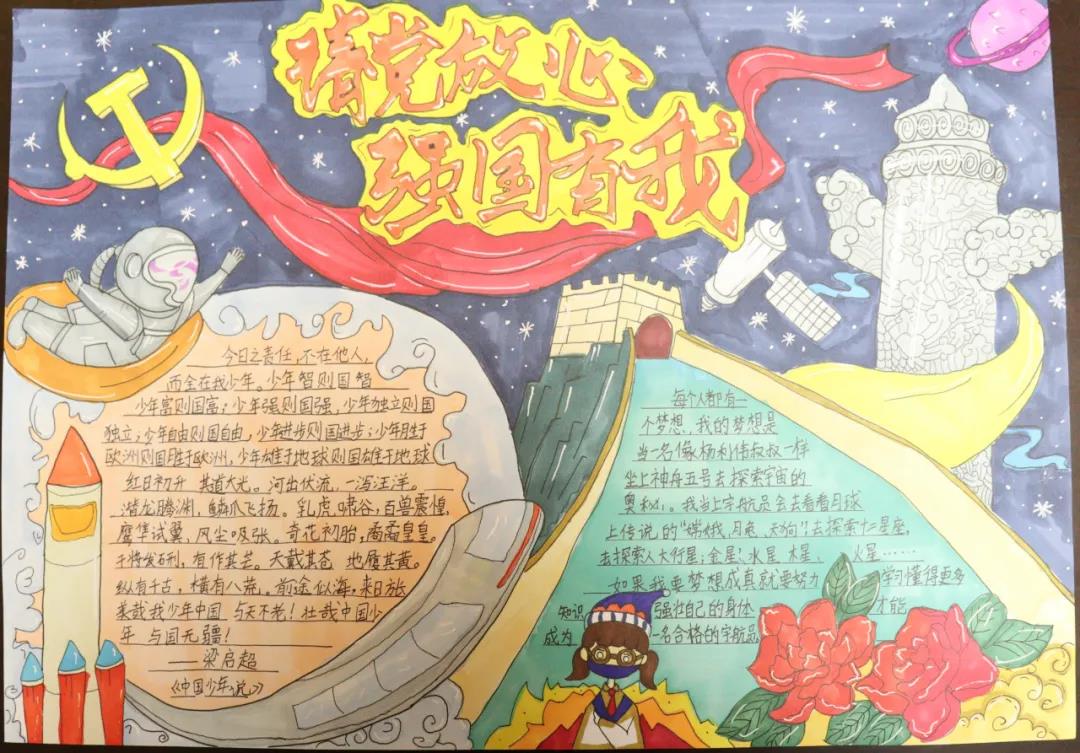 请党放心
强国有我
今日之责任,不在他人,
而全在我少年。少年智则国智
少年富则国富;少年强则国强,少年独立则国
独立;少年自由则国自由,少年进步则国进步;少年胜于
欧洲则国胜于欧洲,少年雄于地球则国雄于地球!
红日初升 其道大光。河出伏流,一泻汪洋。
潜龙腾渊,鳞爪飞扬。乳虎啸谷,百兽震惶,
鹰隼试翼,风尘吸张。奇花初胎,矞矞皇皇。
干将发硎,有作其芒。天戴其苍 地履其黄。
纵有千古,横有八荒。前途似海,来日方长
美哉我少年中国 与天不老!壮哉中国少
年 与国无疆!
——梁启超
《中国少年说》
每个人都有一
个梦想,我的梦想是
当一名像杨利伟叔叔一样
坐上神舟五号去探索宇宙的
奥秘。我当上宇航员会去看看月球
上传说的“嫦娥,月兔、天狗”?去探索十二星座,
去探索八大行星:金星、水星 木星、 火星……
如果我要梦想成真就要努力 学习懂得更多
知识 强壮自己的身体 才能
成为 一名合格的宇航员